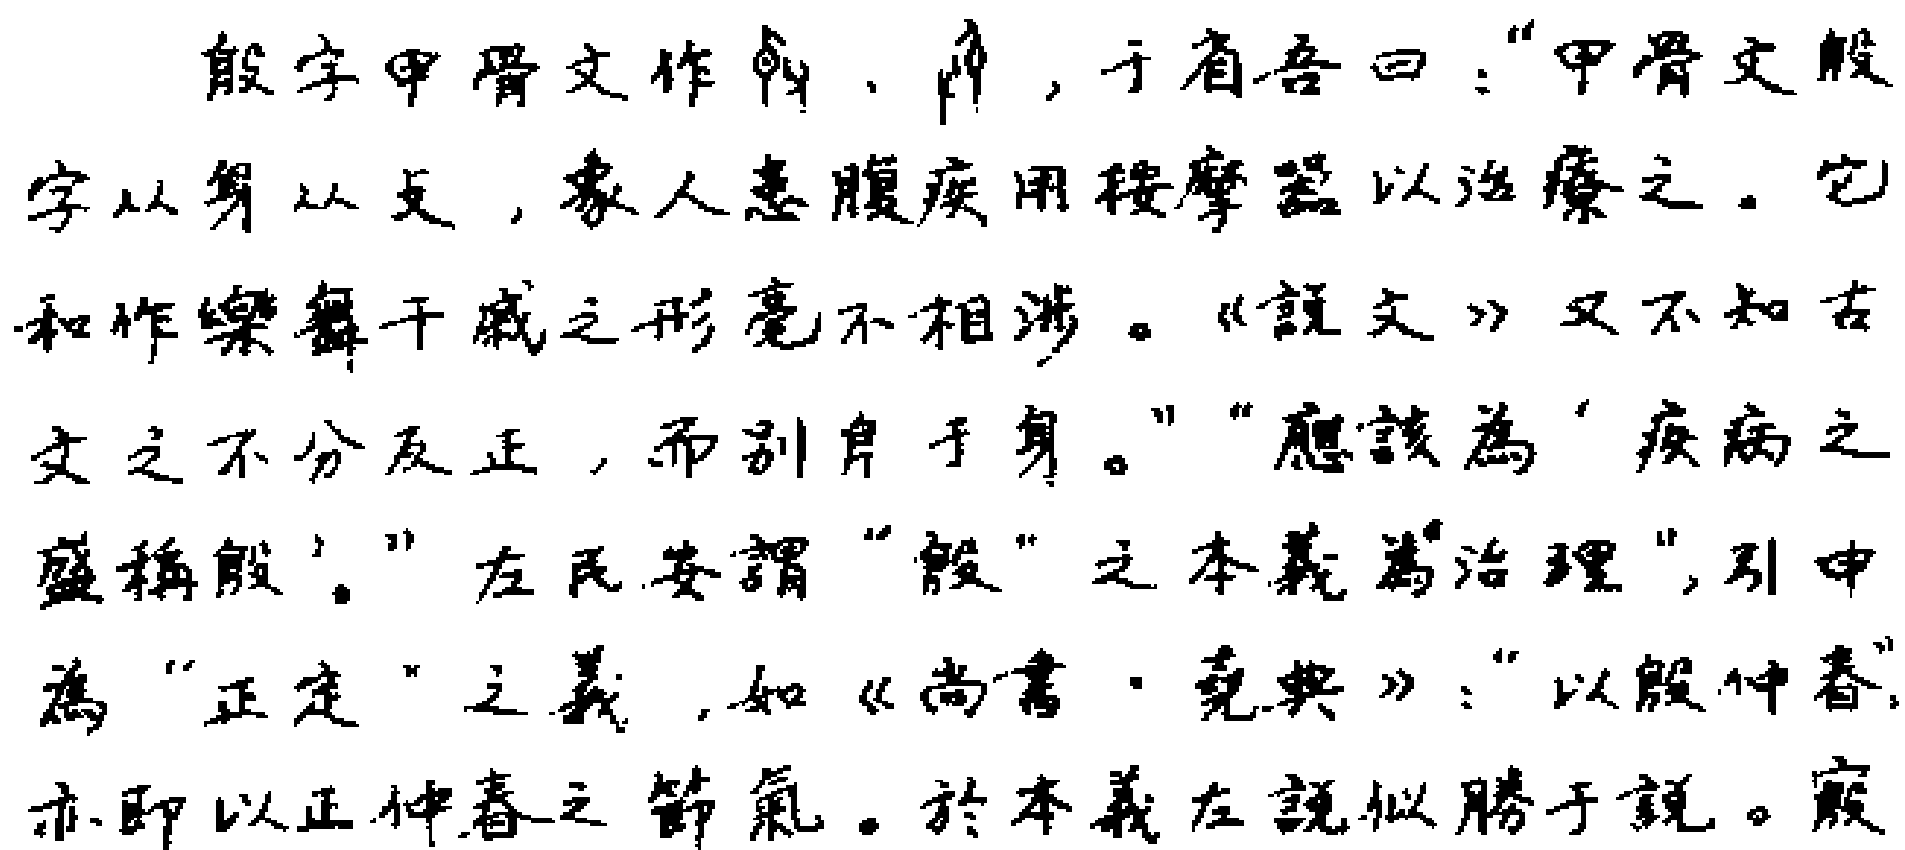 殷字甲骨文作、，于省吾曰：“甲骨文殷
字从身从攴，象人患腹疾用按摩器以治療之。它
和作樂舞干戚之形毫不相涉。《説文》又不知古
文之不分反正，而别㐆于身。”“應該為‘疾病之
盛稱殷’。”左民安謂“殷”之本義為“治理”，引申
為“正定”之義，如《尚書·堯典》：“以殷仲春”，
亦即以正仲春之節氣。於本義左説似勝于説。㱿